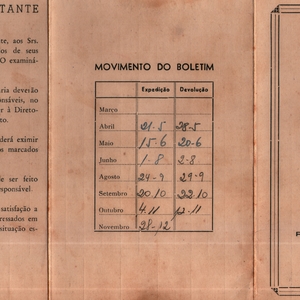 TANTE
te, aos Srs.
os de seus
O examiná-
ria deverão
onsáveis, no
r à Direto-
to.
derá eximir
os marcados
de ser feito
sponsável.
satisfação a
eressados em
situação es-
MOVIMENTO DO BOLETIM
Expedição Devolução
Março
Abril 21-5 28-5
Maio 15-6 20-6
Junho 1-8 2-8
Agosto 24-9 29-9
Setembro 20.10 22.10
Outubro 4.11 12-11
Novembro 28-12